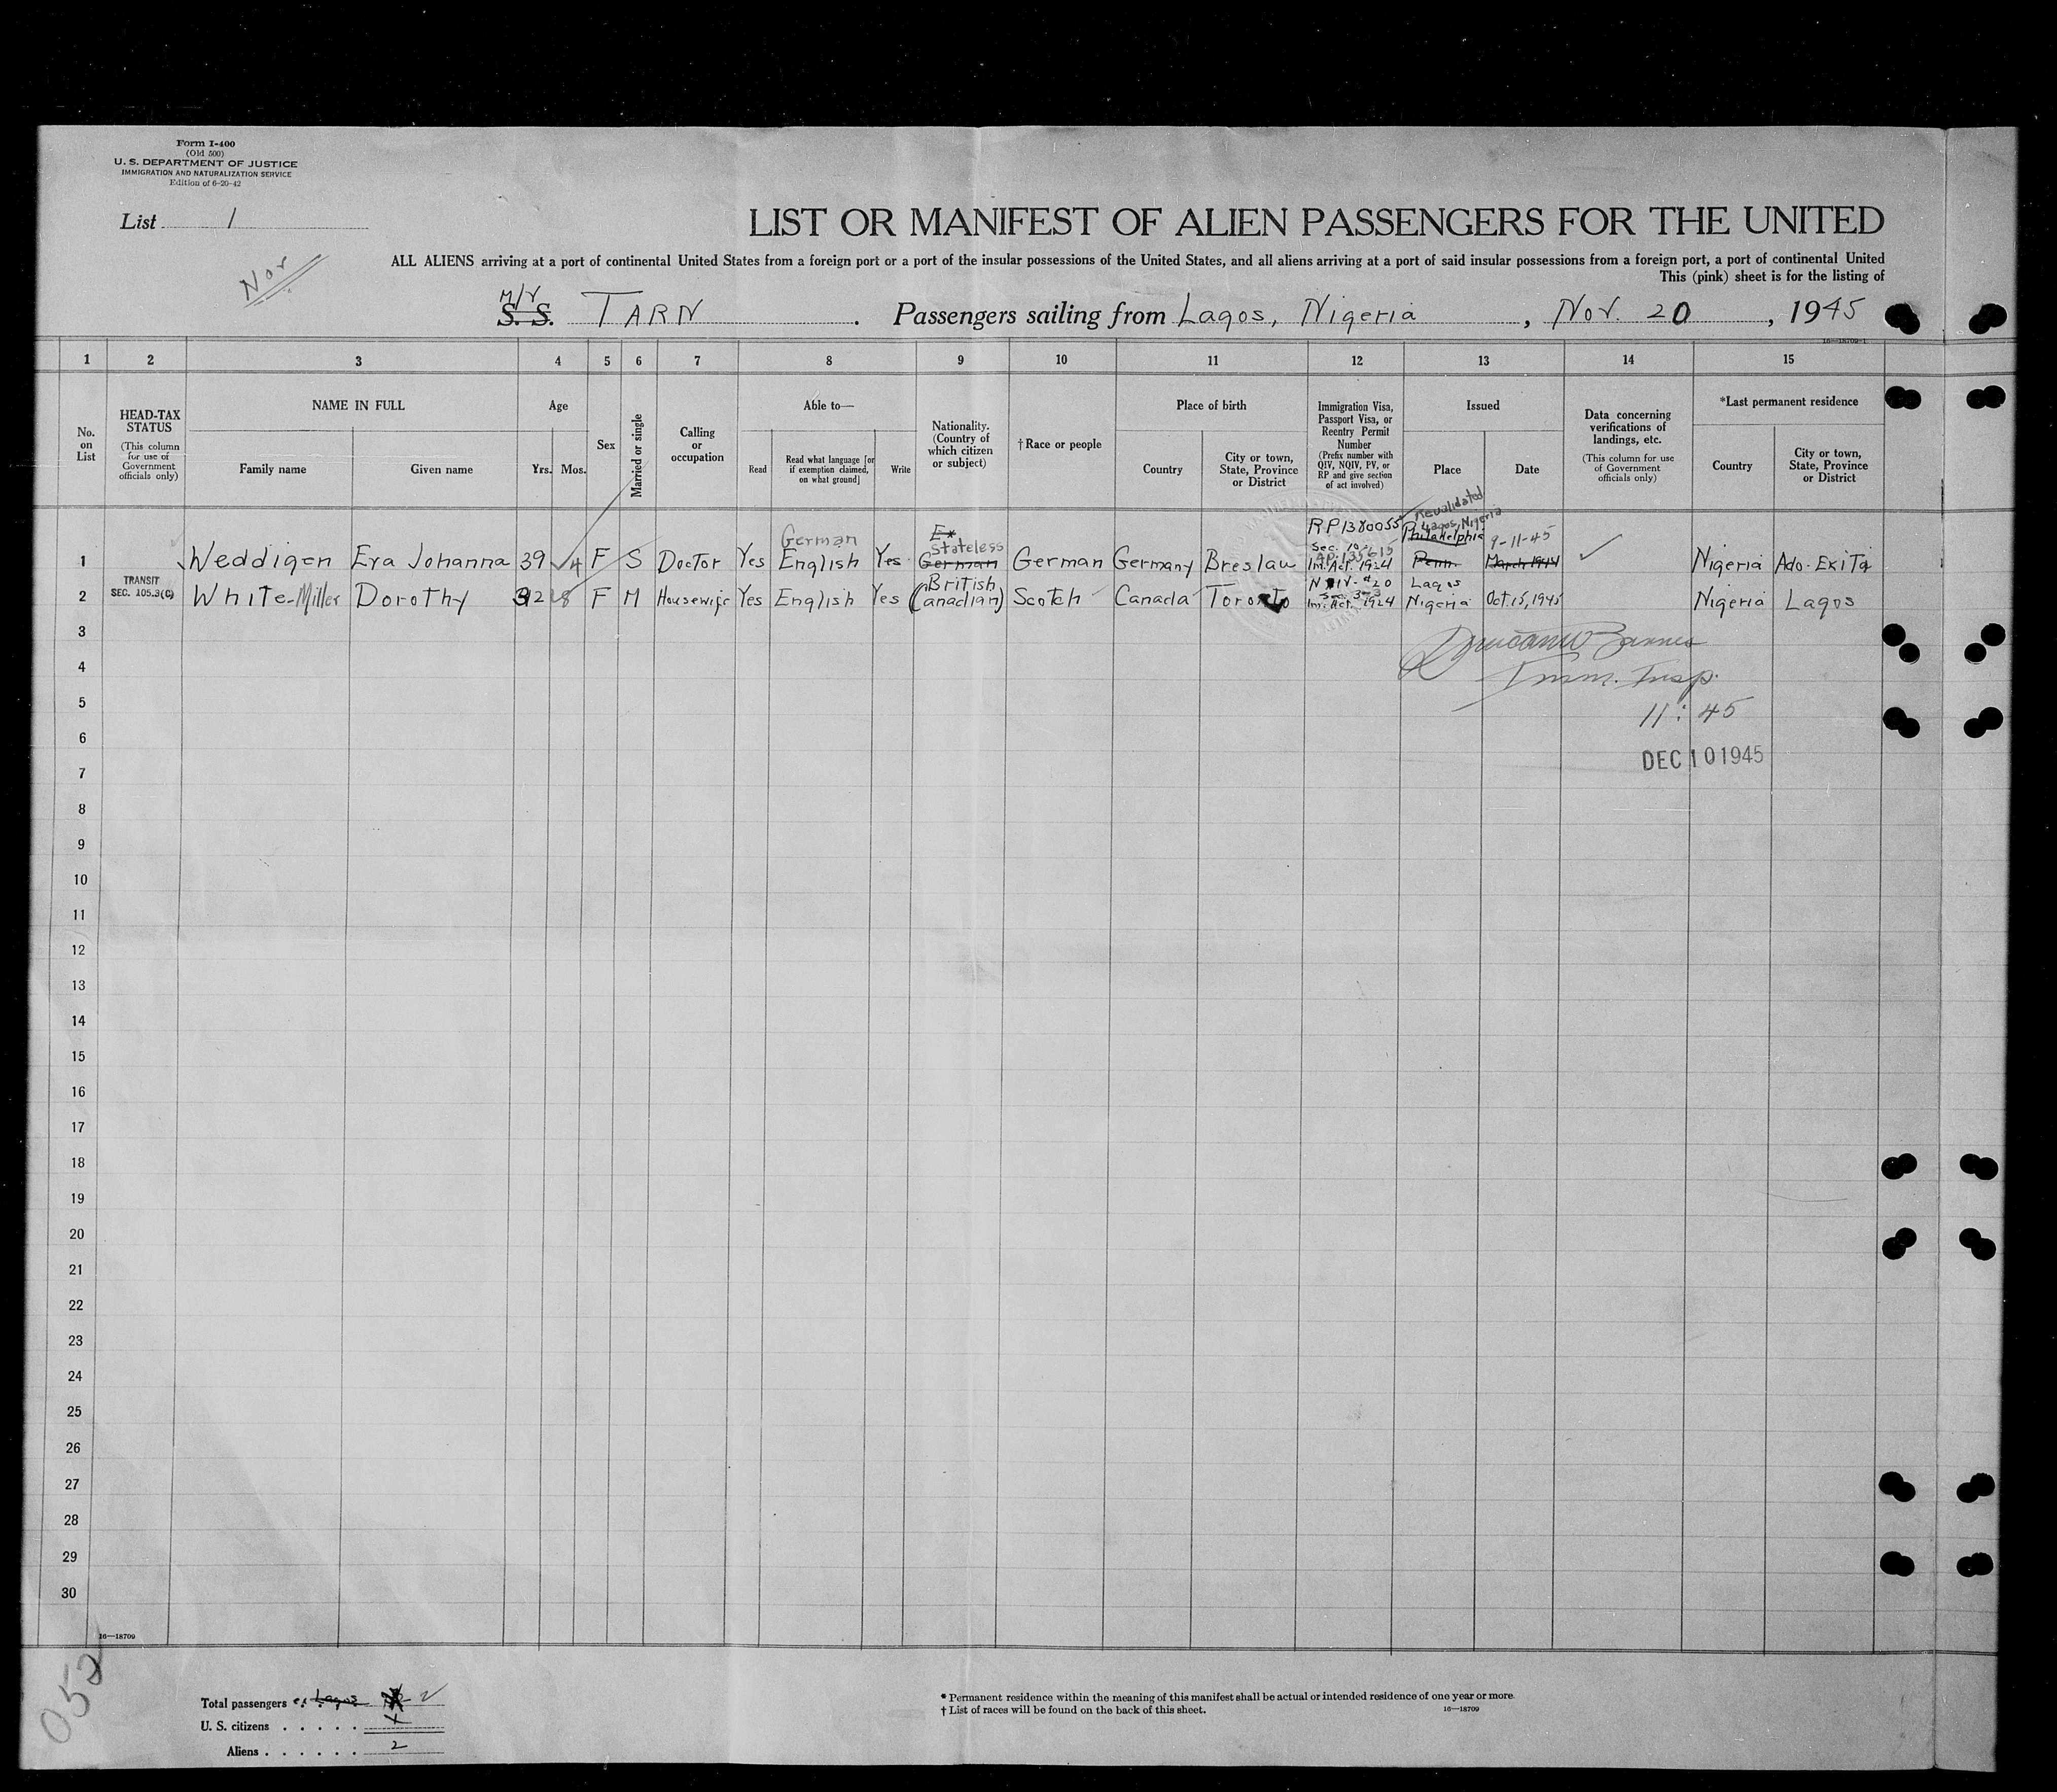 Form I-400
(Old 500)
U. S. DEPARTMENT OF JUSTICE
IMMIGRATION AND NATURALIZATION SERVICE
Edition of 6-20-42
List 1
Nor
LIST OR MANIFEST OF ALIEN PASSENGERS FOR THE UNITED
ALL ALIENS arriving at a port of continental United States from a foreign port or a port of the insular possessions of the United States, and all aliens arriving at a port of said insular possessions from a foreign port, a port of continental United
This (pink) sheet is for the listing of
M/V
S. S. TARN. Passengers sailing from Lagos, Nigeria, Nov. 20, 1945
16—18709-1
1 2 3 4 5 6 7 8 9 10 11 12 13 14 15
No. on List
HEAD-TAX STATUS
(This column for use of Government officials only)
NAME IN FULL
Family name
Given name
Age
Yrs.
Mos.
Sex
Married or single
Calling or occupation
Able to—
Read
Read what language [or if exemption claimed, on what ground]
Write
Nationality. (Country of which citizen or subject)
†Race or people
Place of birth
Country
City or town, State, Province or District
Immigration Visa, Passport Visa, or Reentry Permit Number
(Prefix number with QIV, NQIV, PV, or RP and give section of act involved)
Issued
Place
Date
Data concerning verifications of landings, etc.
(This column for use of Government officials only)
*Last permanent residence
Country
City or town, State, Province or District
Revalidated
Lagos, Nigeria
German Stateless RP1380055 Philadelphia 9-11-45
1 Weddigen Eva Johanna 39 4 F S Doctor Yes English Yes German German Germany Breslau Im. Act. 1924 Penn. March 1944 Nigeria Ado-Ekiti
TRANSIT
SEC. 105.3(C)
British
2 White-Miller Dorothy 8 F M Housewife Yes English Yes (Canadian) Scotch Canada Toronto Im. Act. 1924 Lagos Nigeria Oct. 15, 1945 Nigeria Lagos
3
Imm. Insp.
4
5
11:45
6
7
DEC 10 1945
8
9
10
11
12
13
14
15
16
17
18
19
20
21
22
23
24
25
26
27
28
29
30
16—18709
052
Total passengers Lagos 2
U. S. citizens
Aliens 2
* Permanent residence within the meaning of this manifest shall be actual or intended residence of one year or more.
† List of races will be found on the back of this sheet.
16—18709